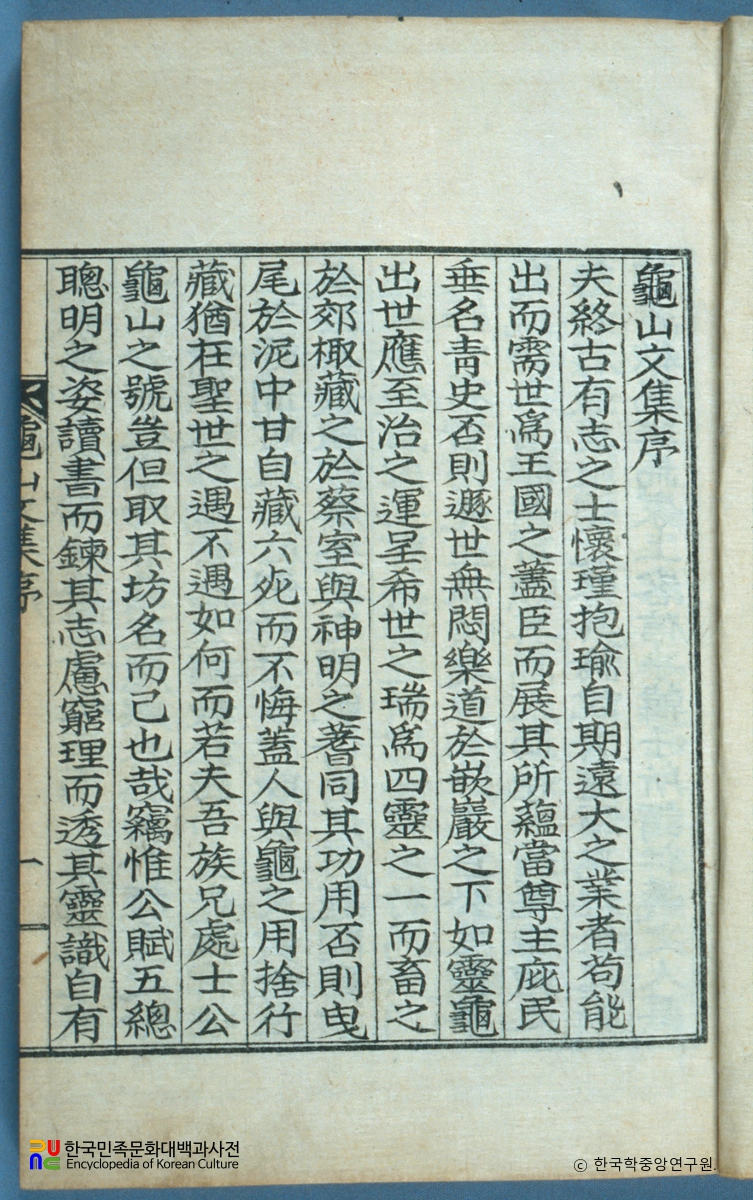 龜山文集序
夫終古有志之士懷瑾抱瑜自期遠大之業者苟能
出而需世爲王國之藎臣而展其所蘊當尊主庇民
垂名靑史否則遯世無悶樂道於嵌巖之下如靈龜
出世應至治之運呈希世之瑞爲四靈之一而畜之
於郊棷藏之於蔡室與神明之蓍同其功用否則曳
尾於泥中甘自藏六死而不悔蓋人與龜之用捨行
藏猶在聖世之遇不遇如何而若夫吾族兄處士公
龜山之號豈但取其坊名而己也哉竊惟公賦五總
聰明之姿讀書而鍊其志慮窮理而透其靈識自有
龜山文集序
一
한국민족문화대백과사전
Encyclopedia of Korean Culture
© 한국학중앙연구원.